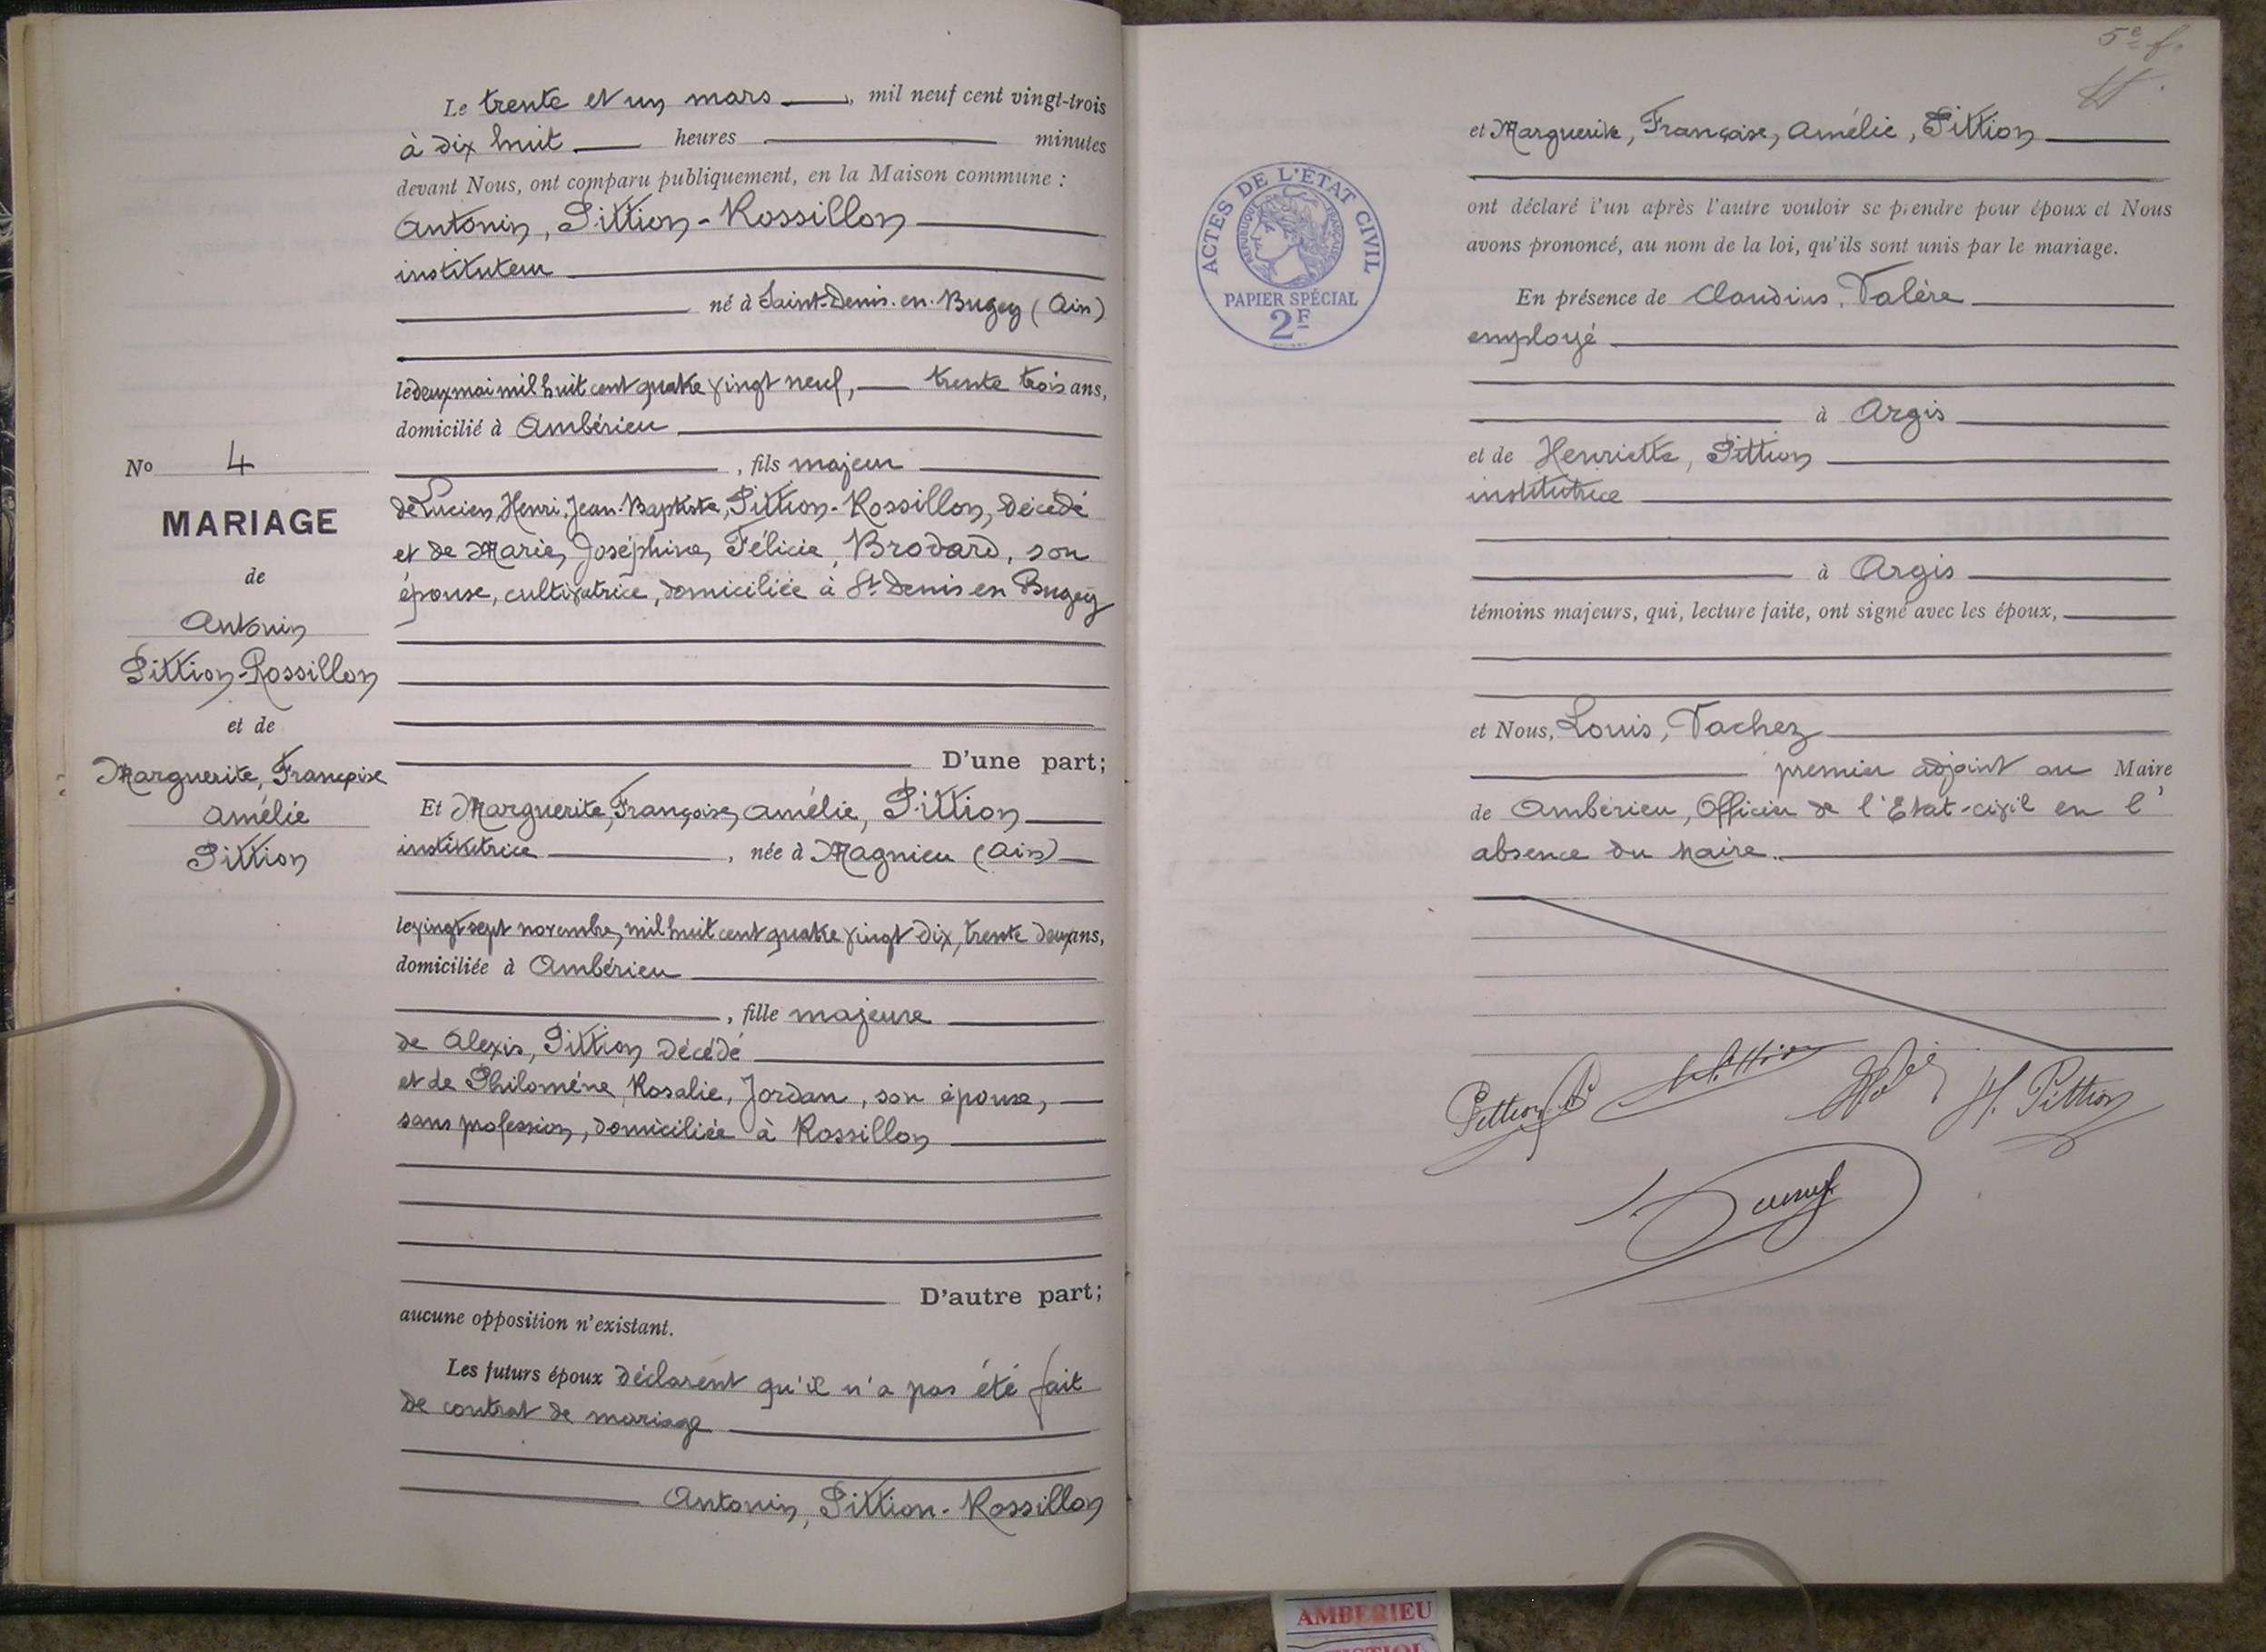 Le trente et un mars, mil neuf cent vingt-trois
à dix huit heures minutes
devant Nous, ont comparu publiquement, en la Maison commune :
Antonin, Pittion-Rossillon
instituteur
né à Saint-Denis-en-Bugey (Ain)
le deux mai mil huit cent quatre vingt neuf, trente trois ans,
domicilié à Ambérieu
, fils majeur
de Lucien, Henri, Jean-Baptiste, Pittion-Rossillon, décédé
et de Marie, Joséphine, Félicie, Brodard, son
épouse, cultivatrice, domiciliée à St Denis en Bugey
D'une part;
Et Marguerite, Françoise, Amélie, Pittion
institutrice, née à Magnieu (Ain)
le vingt sept novembre, mil huit cent quatre vingt dix, trente deux ans,
domiciliée à Ambérieu
, fille majeure
de Alexis, Pittion décédé
et de Philomène, Rosalie, Jordan, son épouse,
sans profession, domiciliée à Rossillon
D'autre part;
aucune opposition n'existant.
Les futurs époux déclarent qu'il n'a pas été fait
de contrat de mariage
Antonin, Pittion-Rossillon
No 4
MARIAGE
de
Antonin
Pittion-Rossillon
et de
Marguerite, Françoise
Amélie
Pittion
5e f.
et Marguerite, Françoise, Amélie, Pittion
ont déclaré l'un après l'autre vouloir se prendre pour époux et Nous
avons prononcé, au nom de la loi, qu'ils sont unis par le mariage.
En présence de Claudius, Valère
employé
à Argis
et de Henriette, Pittion
institutrice
à Argis
témoins majeurs, qui, lecture faite, ont signé avec les époux,
et Nous, Louis, Vachez
premier adjoint au Maire
de Ambérieu, Officier de l'Etat-civil en l'
absence du Maire.
Pittion A
H. Pittion
ACTES DE L'ÉTAT CIVIL
RÉPUBLIQUE FRANÇAISE
PAPIER SPÉCIAL
2F
AMBERIEU